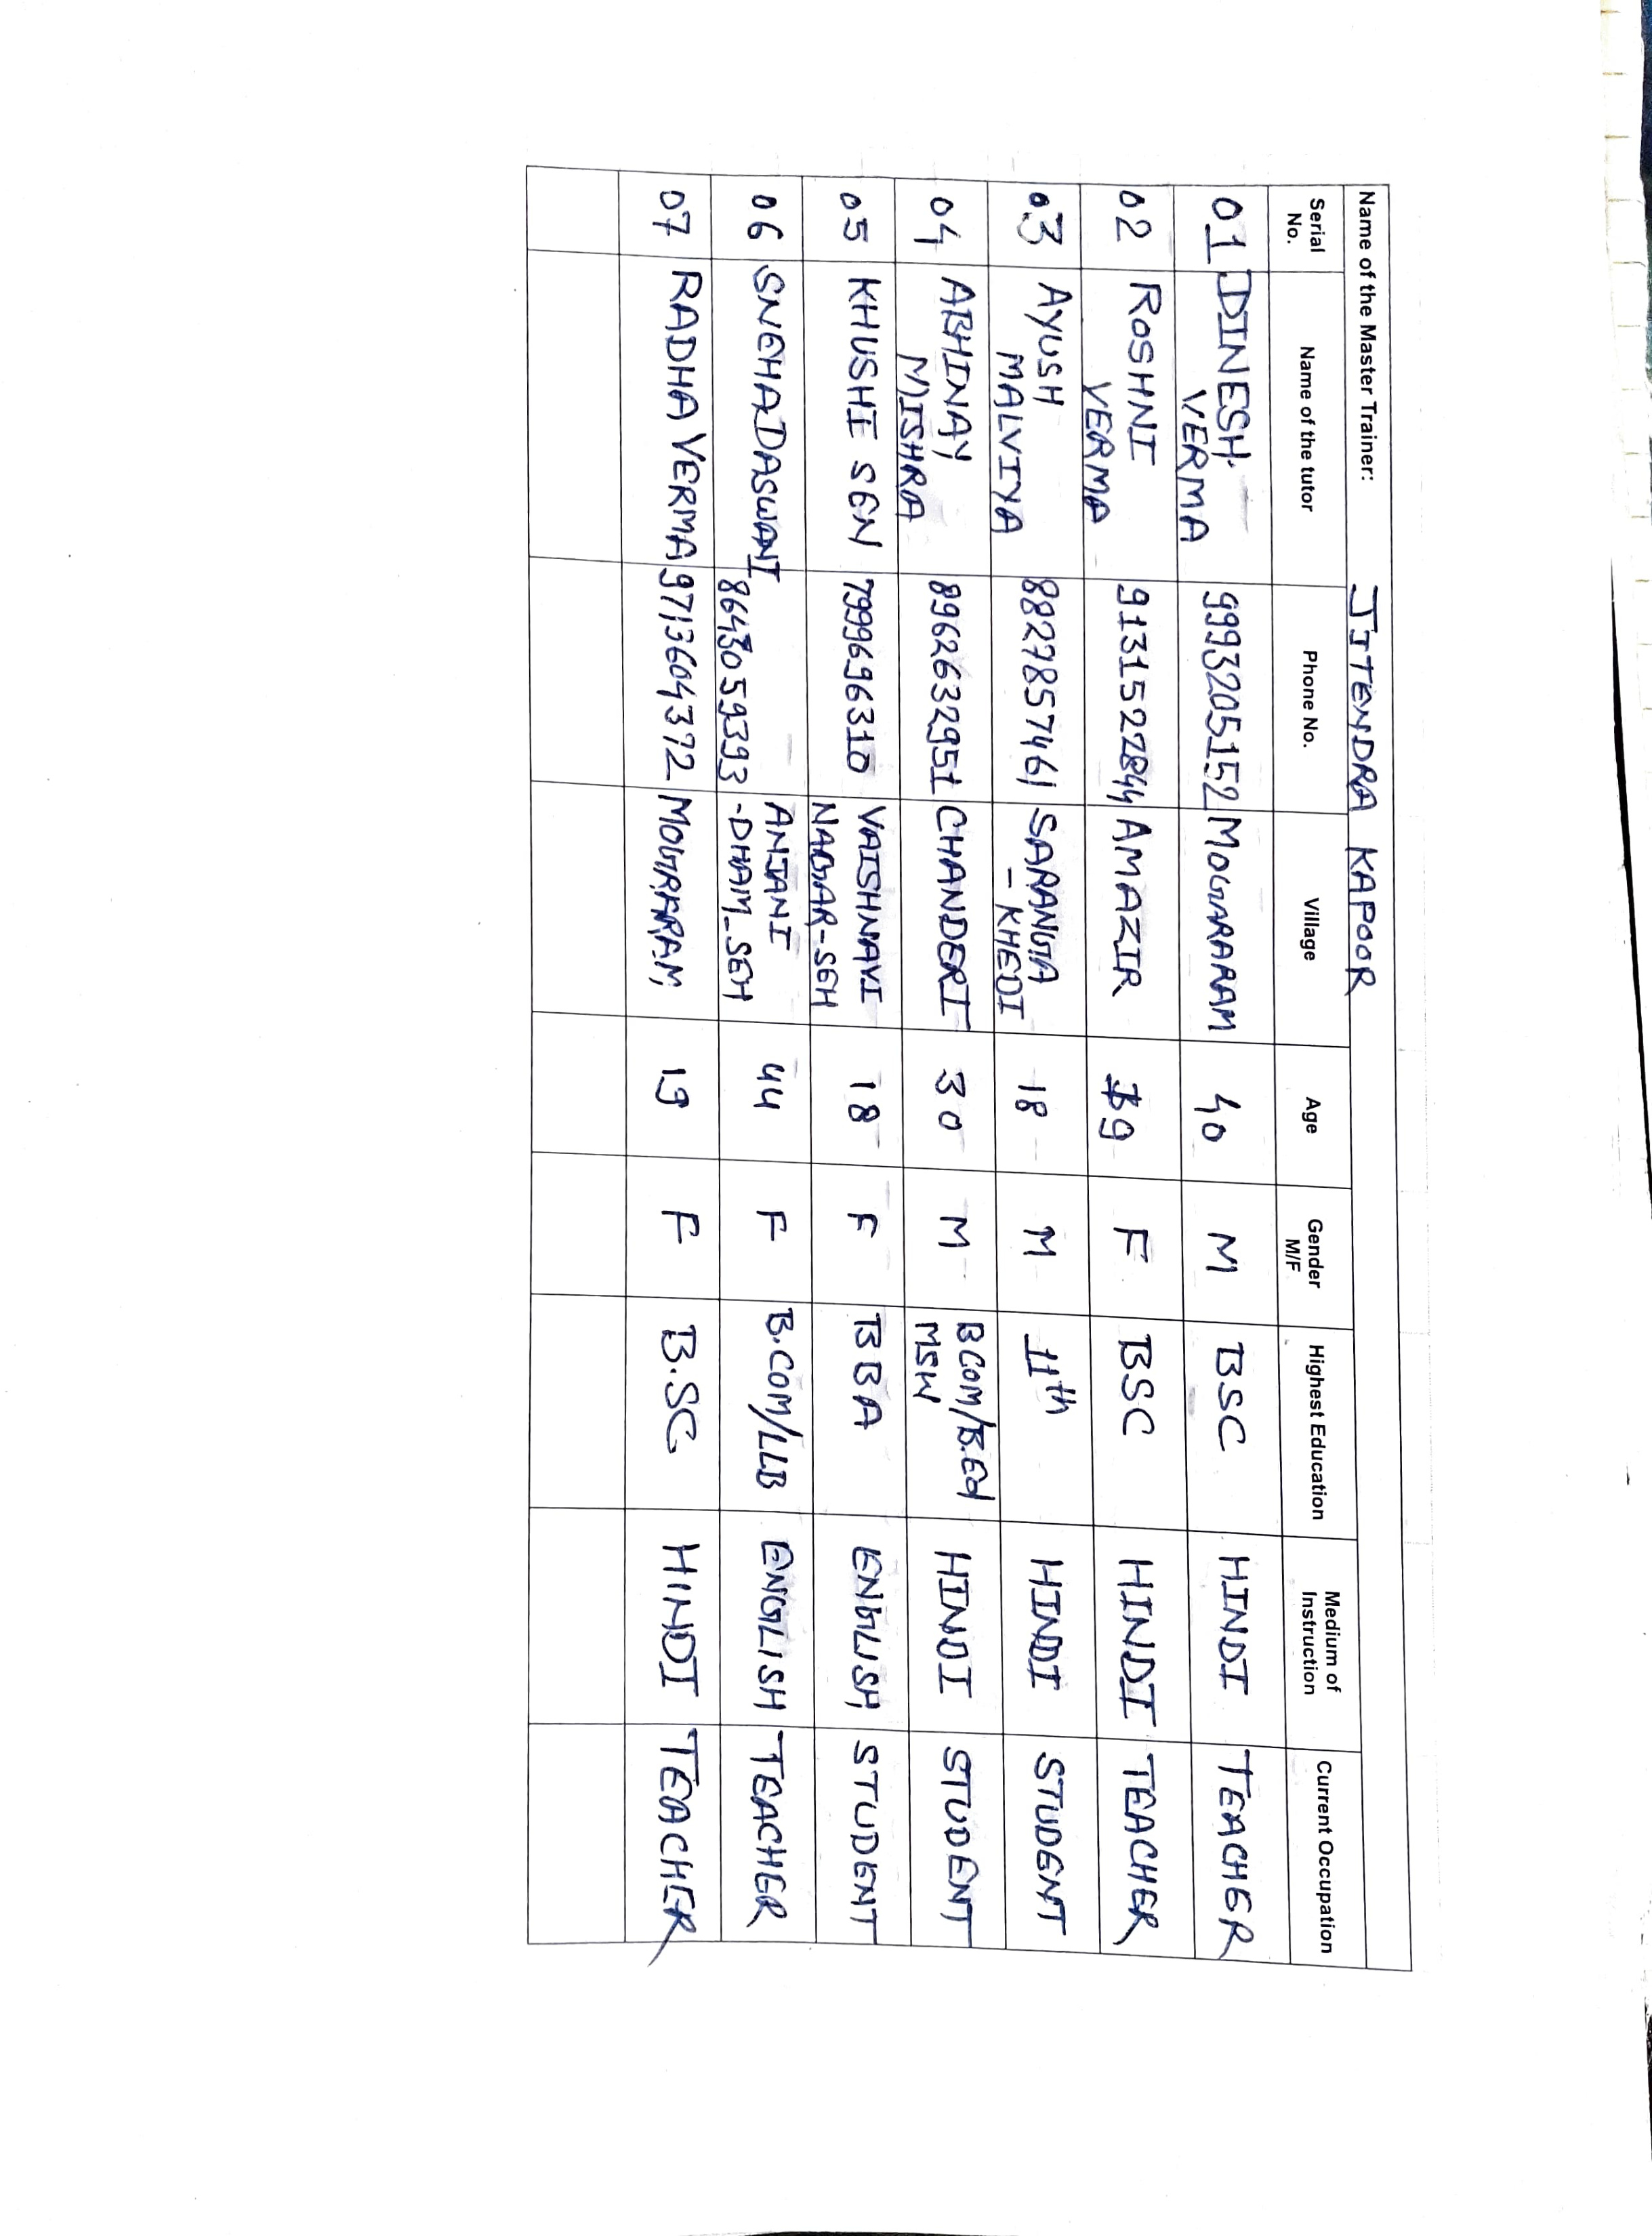 Name of the Master Trainer: JITENDRA KAPOOR
Serial No. Name of the tutor Phone No. Village Age Gender M/F Highest Education Medium of Instruction Current Occupation
01 DINESH VERMA 9993205152 MOGARARAM 40 M BSC HINDI TEACHER
02 ROSHNI VERMA 9131522844 AMAZIR F BSC HINDI TEACHER
03 AYUSH MALVIYA 8827857461 SARANGA - KHEDI 18 M 11th HINDI STUDENT
04 ABHINAY MISHRA 8962632951 CHANDERI 30 M BCOM/B.Ed MSW HINDI STUDENT
05 KHUSHI SEN 7999696310 VAISHNAVI NAGAR-SEH 18 F BBA ENGLISH STUDENT
06 SNEHA DASWANI 8643059393 ANJANI -DHAM-SEH 44 F B.COM/LLB ENGLISH TEACHER
07 RADHA VERMA 9713604372 19 F B.SC HINDI TEACHER